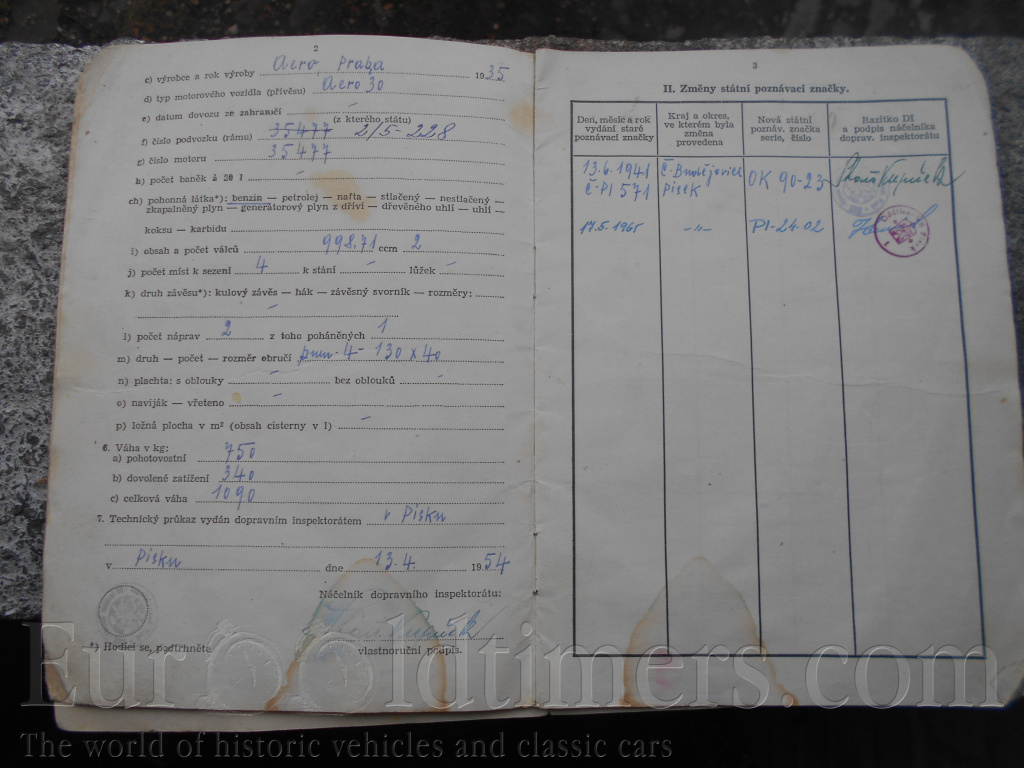 2
c) výrobce a rok výroby Aero, Praha 1935
d) typ motorového vozidla (přívěsu) Aero 30
e) datum dovozu ze zahraničí –
(z kterého státu)
f) číslo podvozku (rámu) 35477 2/5-228
g) číslo motoru 35477
h) počet baněk à 20 l –
ch) pohonná látka*): benzin — petrolej — nafta — stlačený — nestlačený —
zkapalněný plyn — generátorový plyn z dříví — dřevěného uhlí — uhlí —
koksu — karbidu
i) obsah a počet válců 998.71 ccm 2
j) počet míst k sezení 4 k stání – lůžek –
k) druh závěsu*): kulový závěs — hák — závěsný svorník — rozměry:
–
l) počet náprav 2 z toho poháněných 1
m) druh — počet — rozměr obručí pneu - 4 - 130 x 40
n) plachta: s oblouky – bez oblouků –
o) naviják — vřeteno –
p) ložná plocha v m² (obsah cisterny v l) –
6. Váha v kg:
a) pohotovostní 750
b) dovolené zatížení 340
c) celková váha 1090
7. Technický průkaz vydán dopravním inspektorátem v Písku
v Písku dne 13.4 1954
Náčelník dopravního inspektorátu:
*) Hodící se, podtrhněte
vlastnoruční podpis.
3
II. Změny státní poznávací značky.
Den, měsíc a rok vydání staré poznávací značky
Kraj a okres, ve kterém byla změna provedena
Nová státní poznáv. značka serie, číslo
Razítko DI a podpis náčelníka doprav. inspektorátu
13.6.1941 Č. Budějovice OK 90-23
Č-PI 571 Písek
17.5.1965 –"– PI-24-02
EuroOldtimers.com
The world of historic vehicles and classic cars